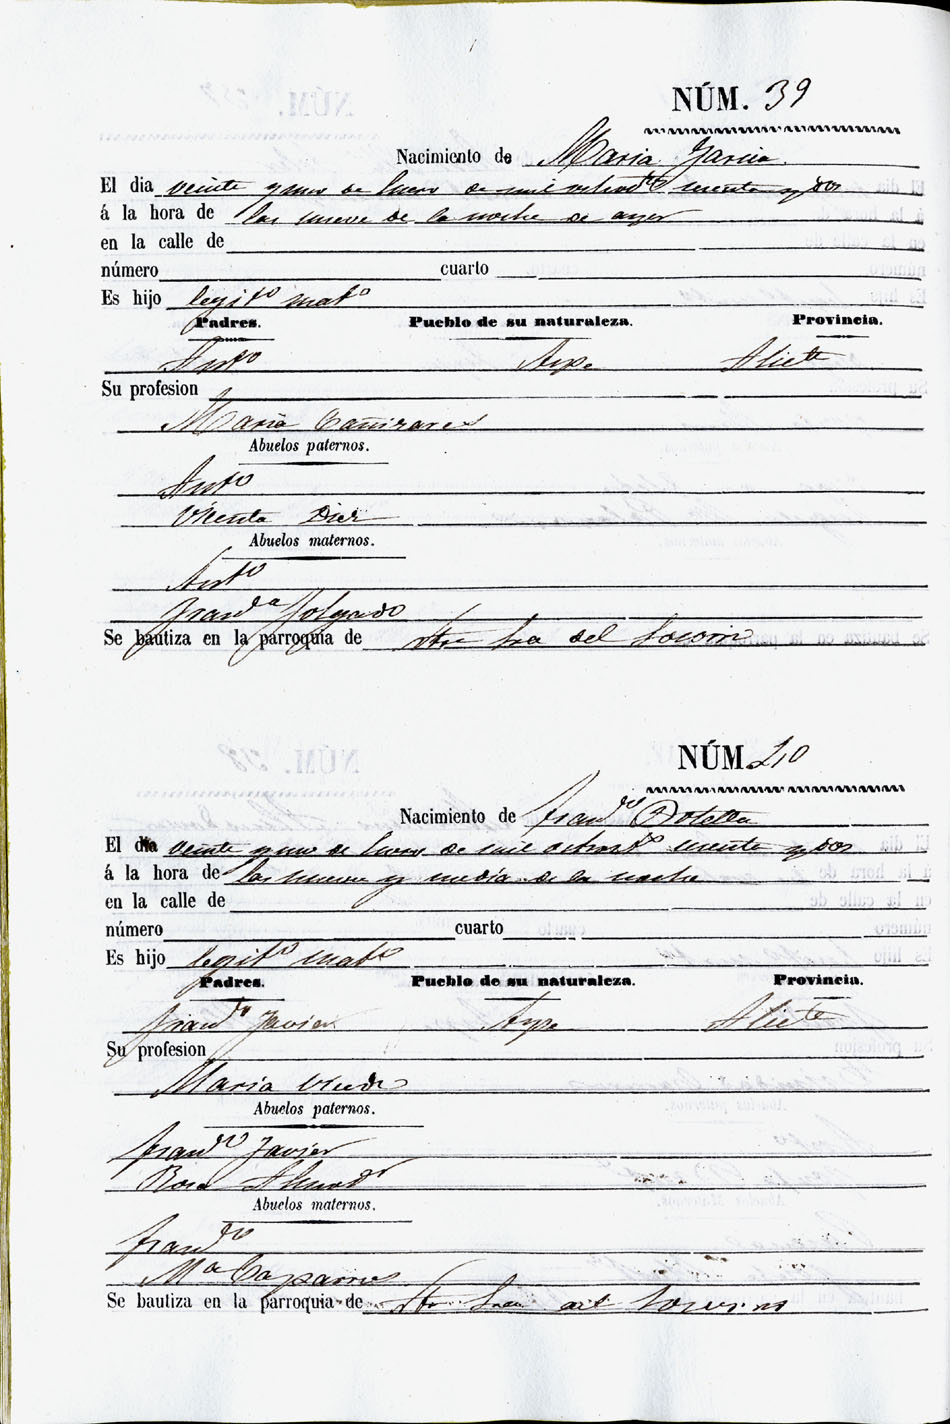 NÚM. 39
Nacimiento de Maria Garcia
El dia veinte y uno de Enero de mil ochoc.tos sesenta y dos
á la hora de las nueve de la noche de ayer
en la calle de
número cuarto
Es hijo legit.o mat.o
Padres. Pueblo de su naturaleza. Provincia.
Ant.o Aspe Alic.te
Su profesion
Maria Cañizares
Abuelos paternos.
Ant.o
Vicenta Diez
Abuelos maternos.
Ant.o
Fran.ca Folgado
Se bautiza en la parroquia de Ntra Sra del Socorro
NÚM. 40
Nacimiento de Fran.co Botella
El dia veinte y uno de Enero de mil ochoc.tos sesenta y dos
á la hora de las nueve y media de la noche
en la calle de
número cuarto
Es hijo legit.o mat.o
Padres. Pueblo de su naturaleza. Provincia.
Fran.co Javier Aspe Alic.te
Su profesion
Maria
Abuelos paternos.
Fran.co Javier
Rosa
Abuelos maternos.
Fran.co
M.a Caparros
Se bautiza en la parroquia de Ntra Sra del Socorro